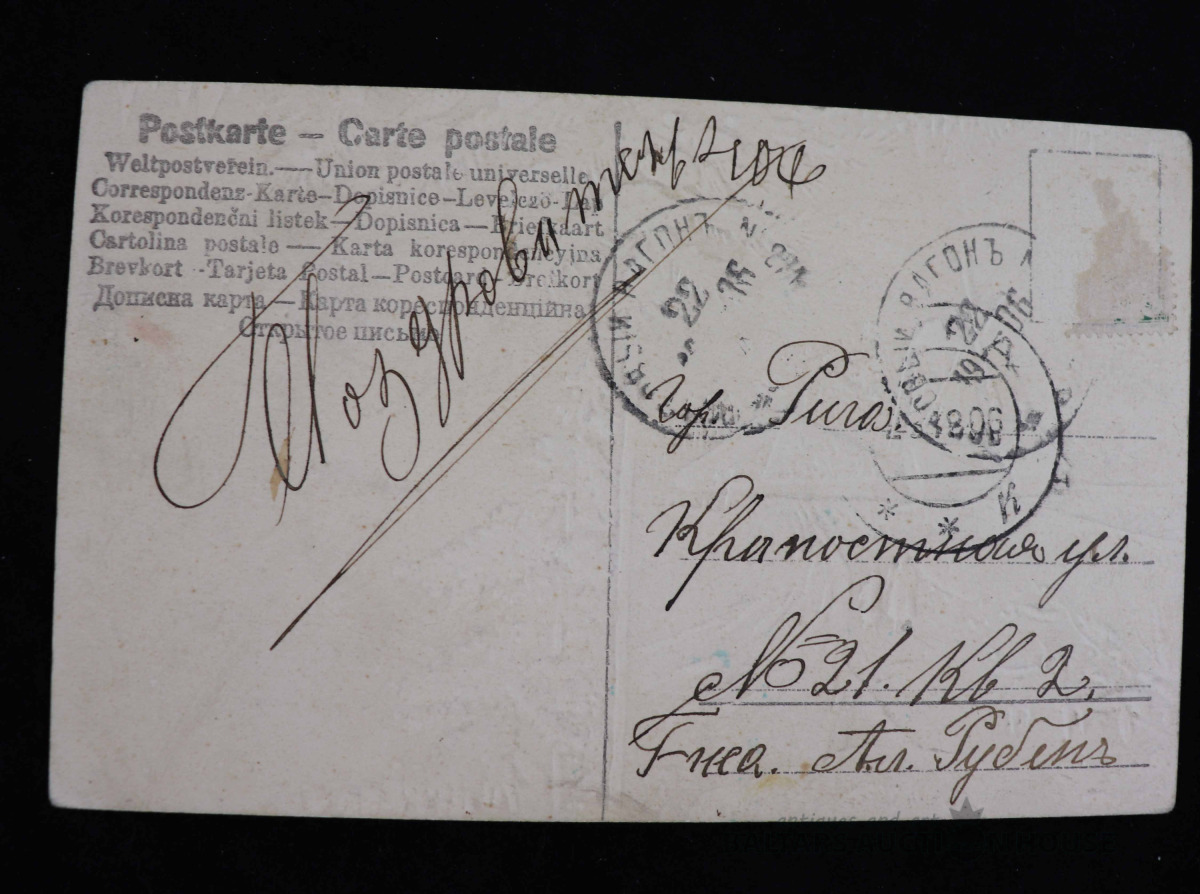 Postkarte – Carte postale
Weltpostverein.—Union postale universelle
Correspondenz-Karte—Dopisnice—Levelező-Lap
Korespondenčni listek—Dopisnica—Briefkaart
Cartolina postale — Karta korespondencyjna
Brevkort -Tarjeta Postal—Postcard—Brefkort
Дописна карта.—Карта кореспонденційна
Открытое письмо
ВАГОНЪ
22
06
ВАГОНЪ
22
19 06
1806
К
гор. Рига
Крапостная ул.
№ 21. Кв 2.
Гжа. Ал. Рубенъ
antiques and art
AUCTION HOUSE